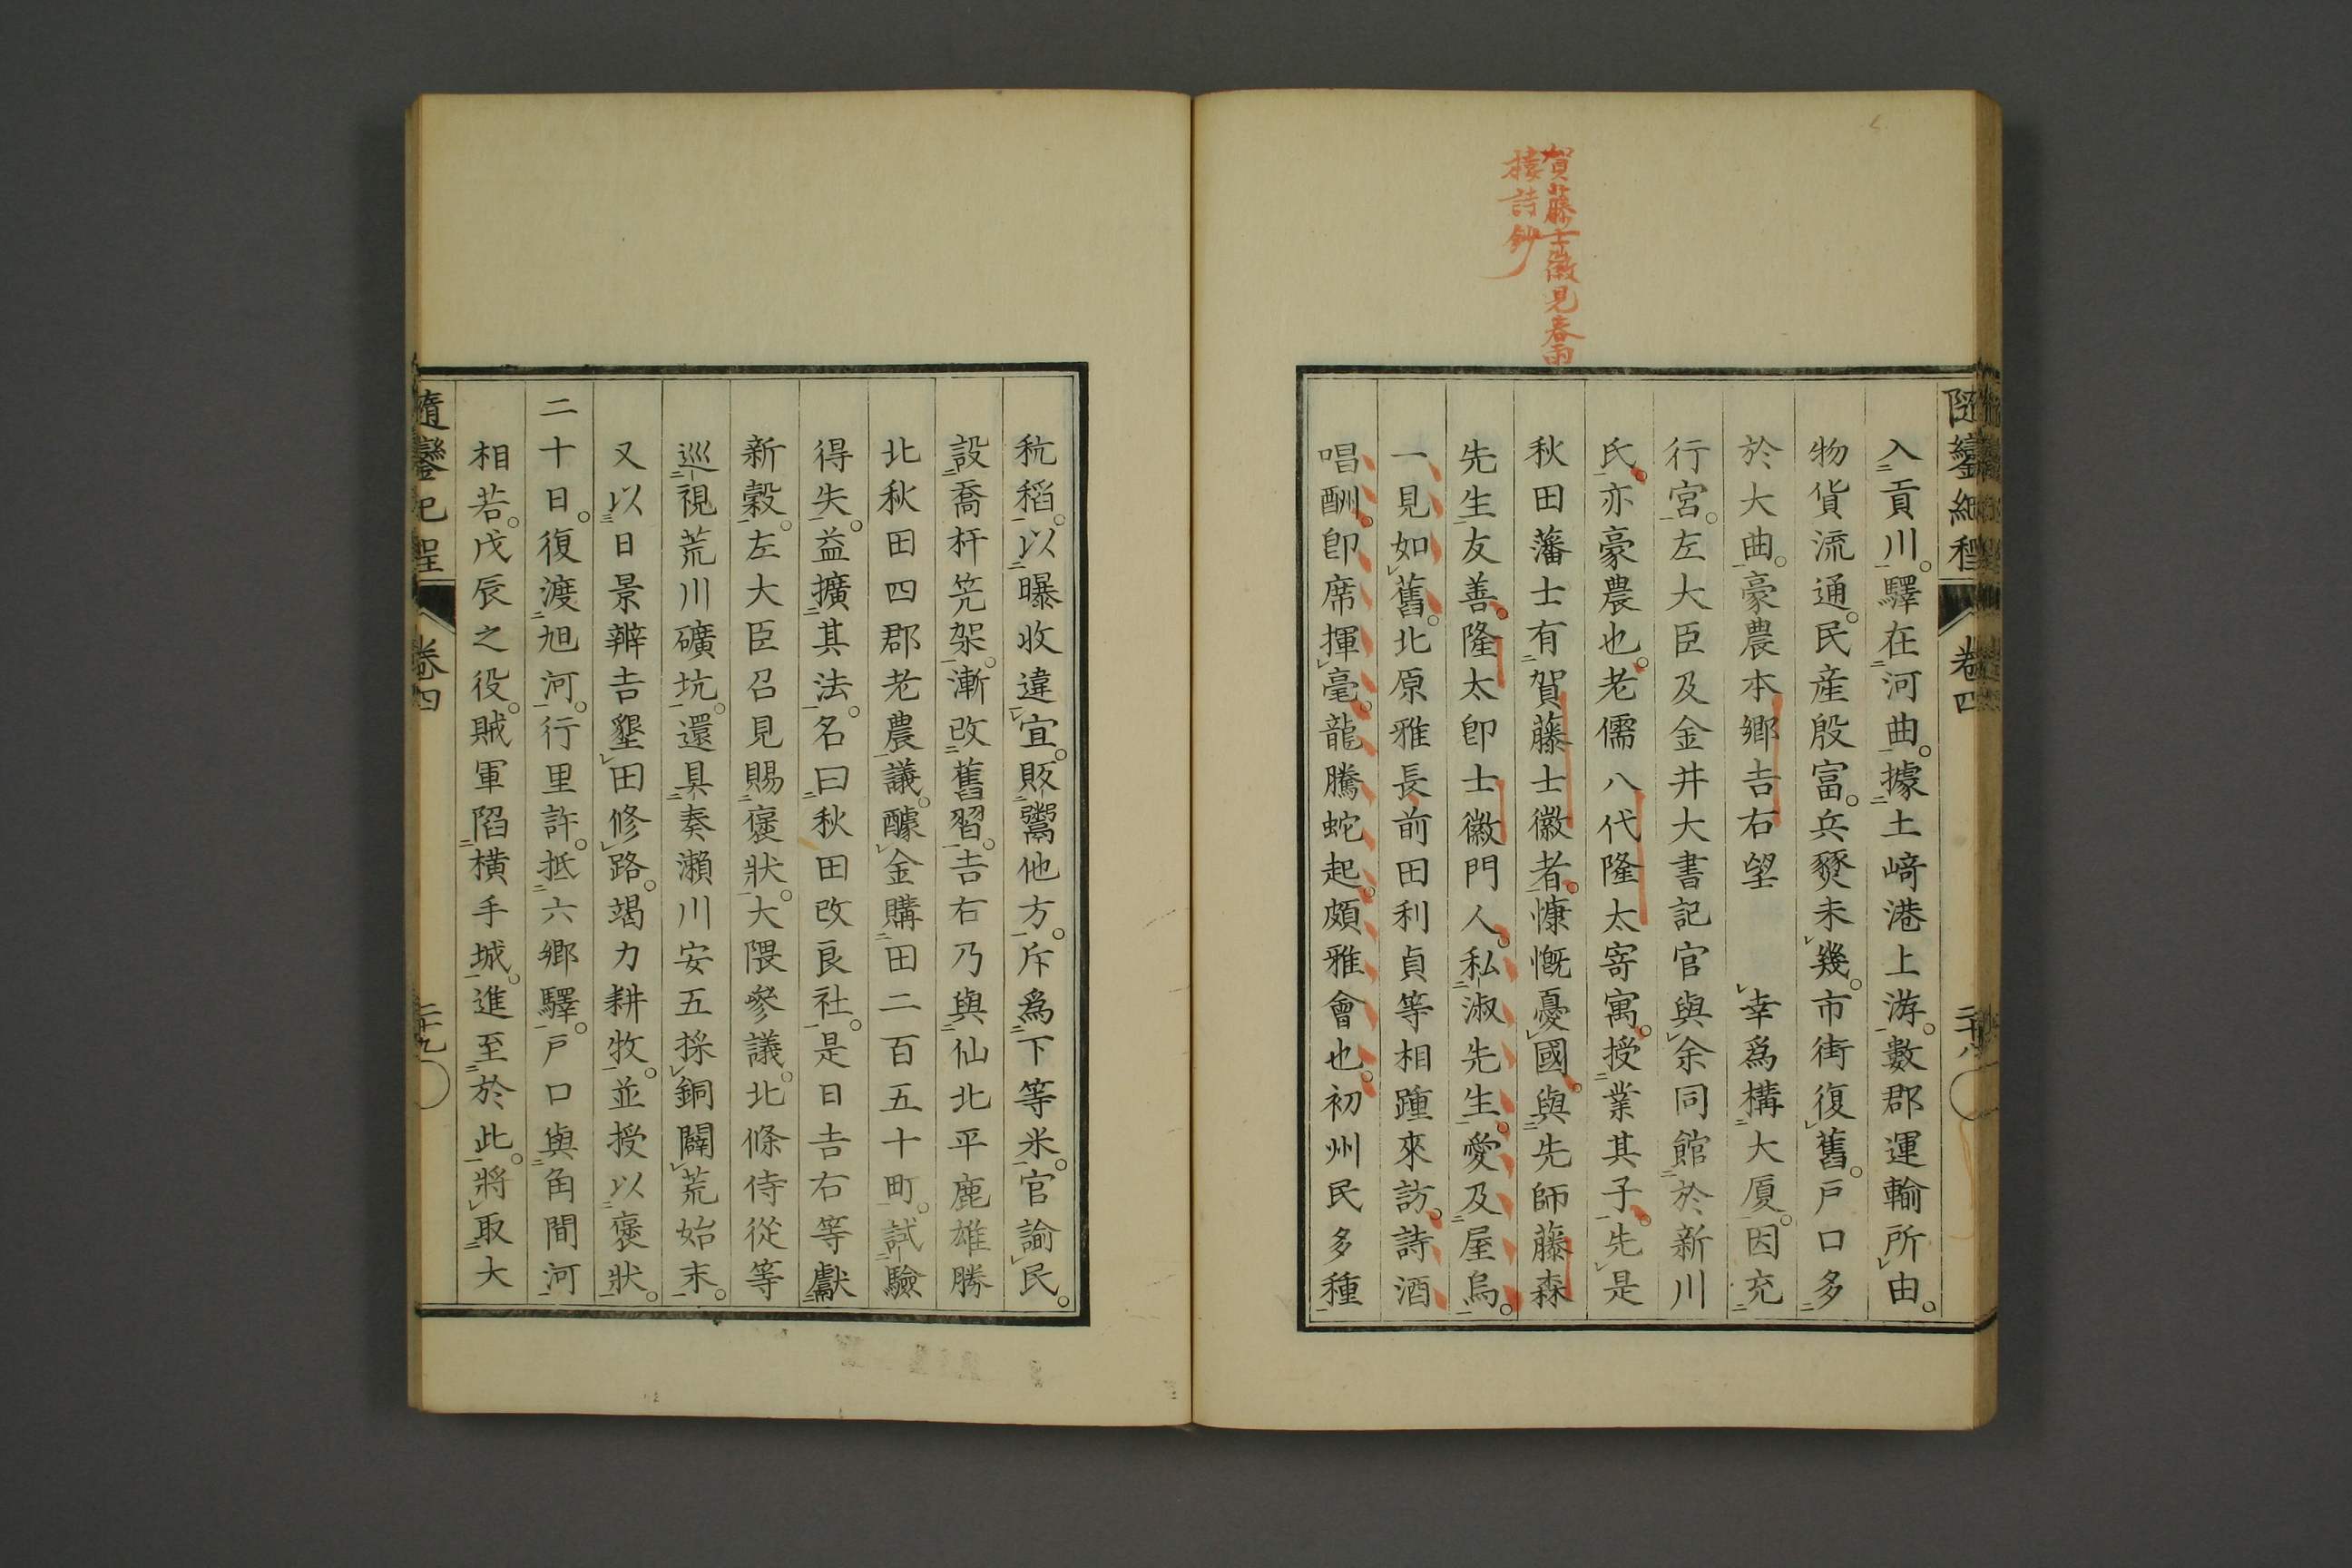 賀藤士徽見春雨
樓詩鈔
隨鑾紀程
卷四
二十八
入貢川。驛在河曲。據土﨑港上游。數郡運輸所由。
物貨流通。民産殷富。兵燹未幾。市街復舊。戸口多
於大曲。豪農本鄉吉右望 幸爲構大厦。因充
行宮。左大臣及金井大書記官與余同館於新川
氏。亦豪農也。老儒八代隆太寄寓。授業其子。先是
秋田藩士有賀藤士徽者。慷慨憂國。與先師藤森
先生友善。隆太卽士徽門人。私淑先生。愛及屋烏。
一見如舊。北原雅長前田利貞等相踵來訪。詩酒
唱酬。卽席揮毫。龍騰蛇起。頗雅會也。初州民多種
秔稻。以曝收違宜。販鬻他方。斥爲下等米。官諭民。
設喬杆笐架。漸改舊習。吉右乃與仙北平鹿雄勝
北秋田四郡老農議。醵金購田二百五十町。試驗
得失。益擴其法。名曰秋田改良社。是日吉右等獻
新穀。左大臣召見賜褒狀。大隈參議。北條侍從等
巡視荒川礦坑。還具奏瀨川安五採銅闢荒始末。
又以日景辨吉墾田修路。竭力耕牧。並授以褒狀。
二十日。復渡旭河。行里許。抵六鄉驛。戸口與角間河
相若。戊辰之役。賊軍陷橫手城。進至於此。將取大
隨鑾紀程
卷四
二十九